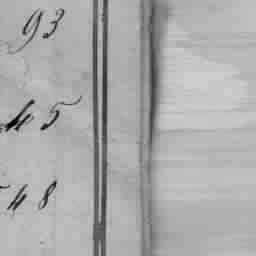 93
45
48